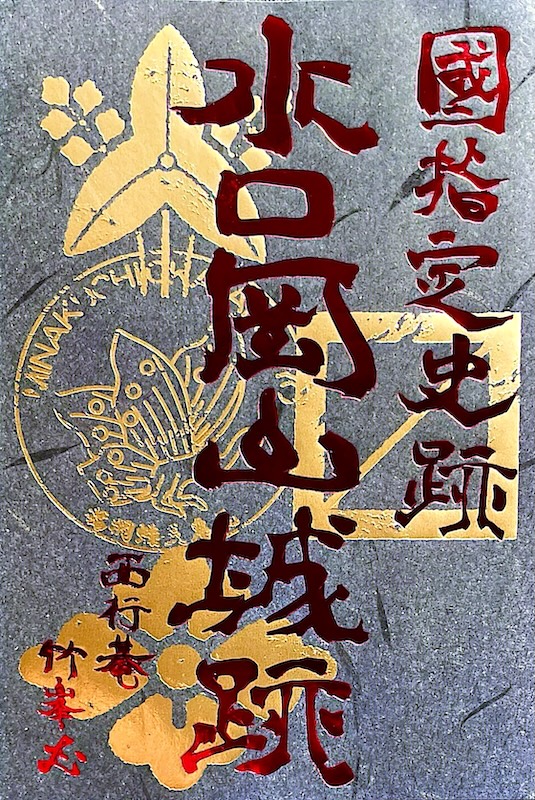 國指定史跡
水口岡山城跡
西行菴
竹峯
MINAK